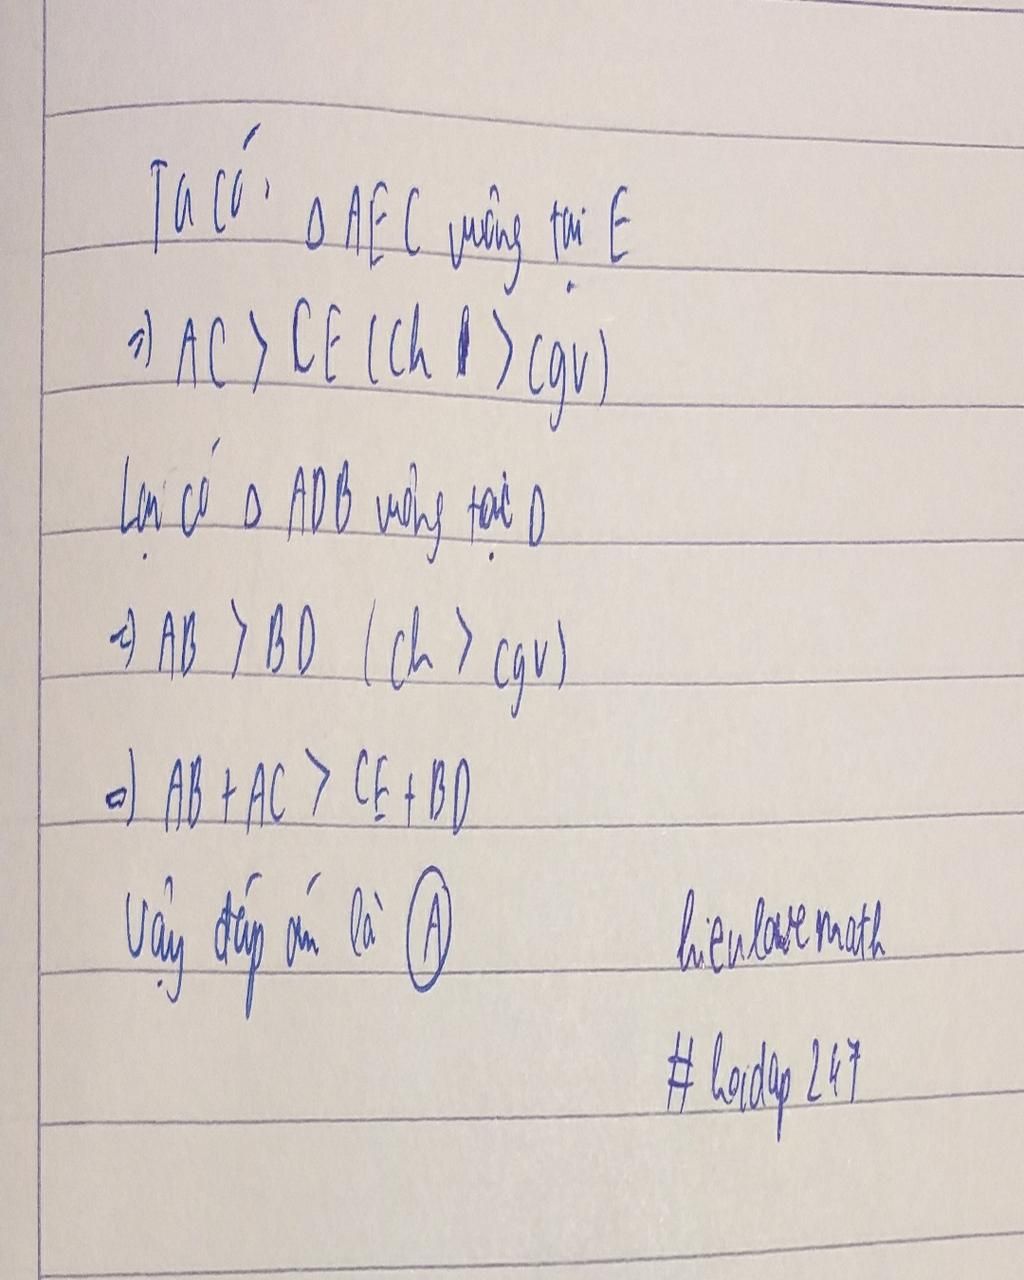 Ta có: Δ AEC vuông tại E
=> AC > CE (ch > cgv)
Lại có Δ ADB vuông tại D
=> AB > BD (ch > cgv)
=> AB + AC > CE + BD
Vậy đáp án là A
hienlovemath
# hoidap247